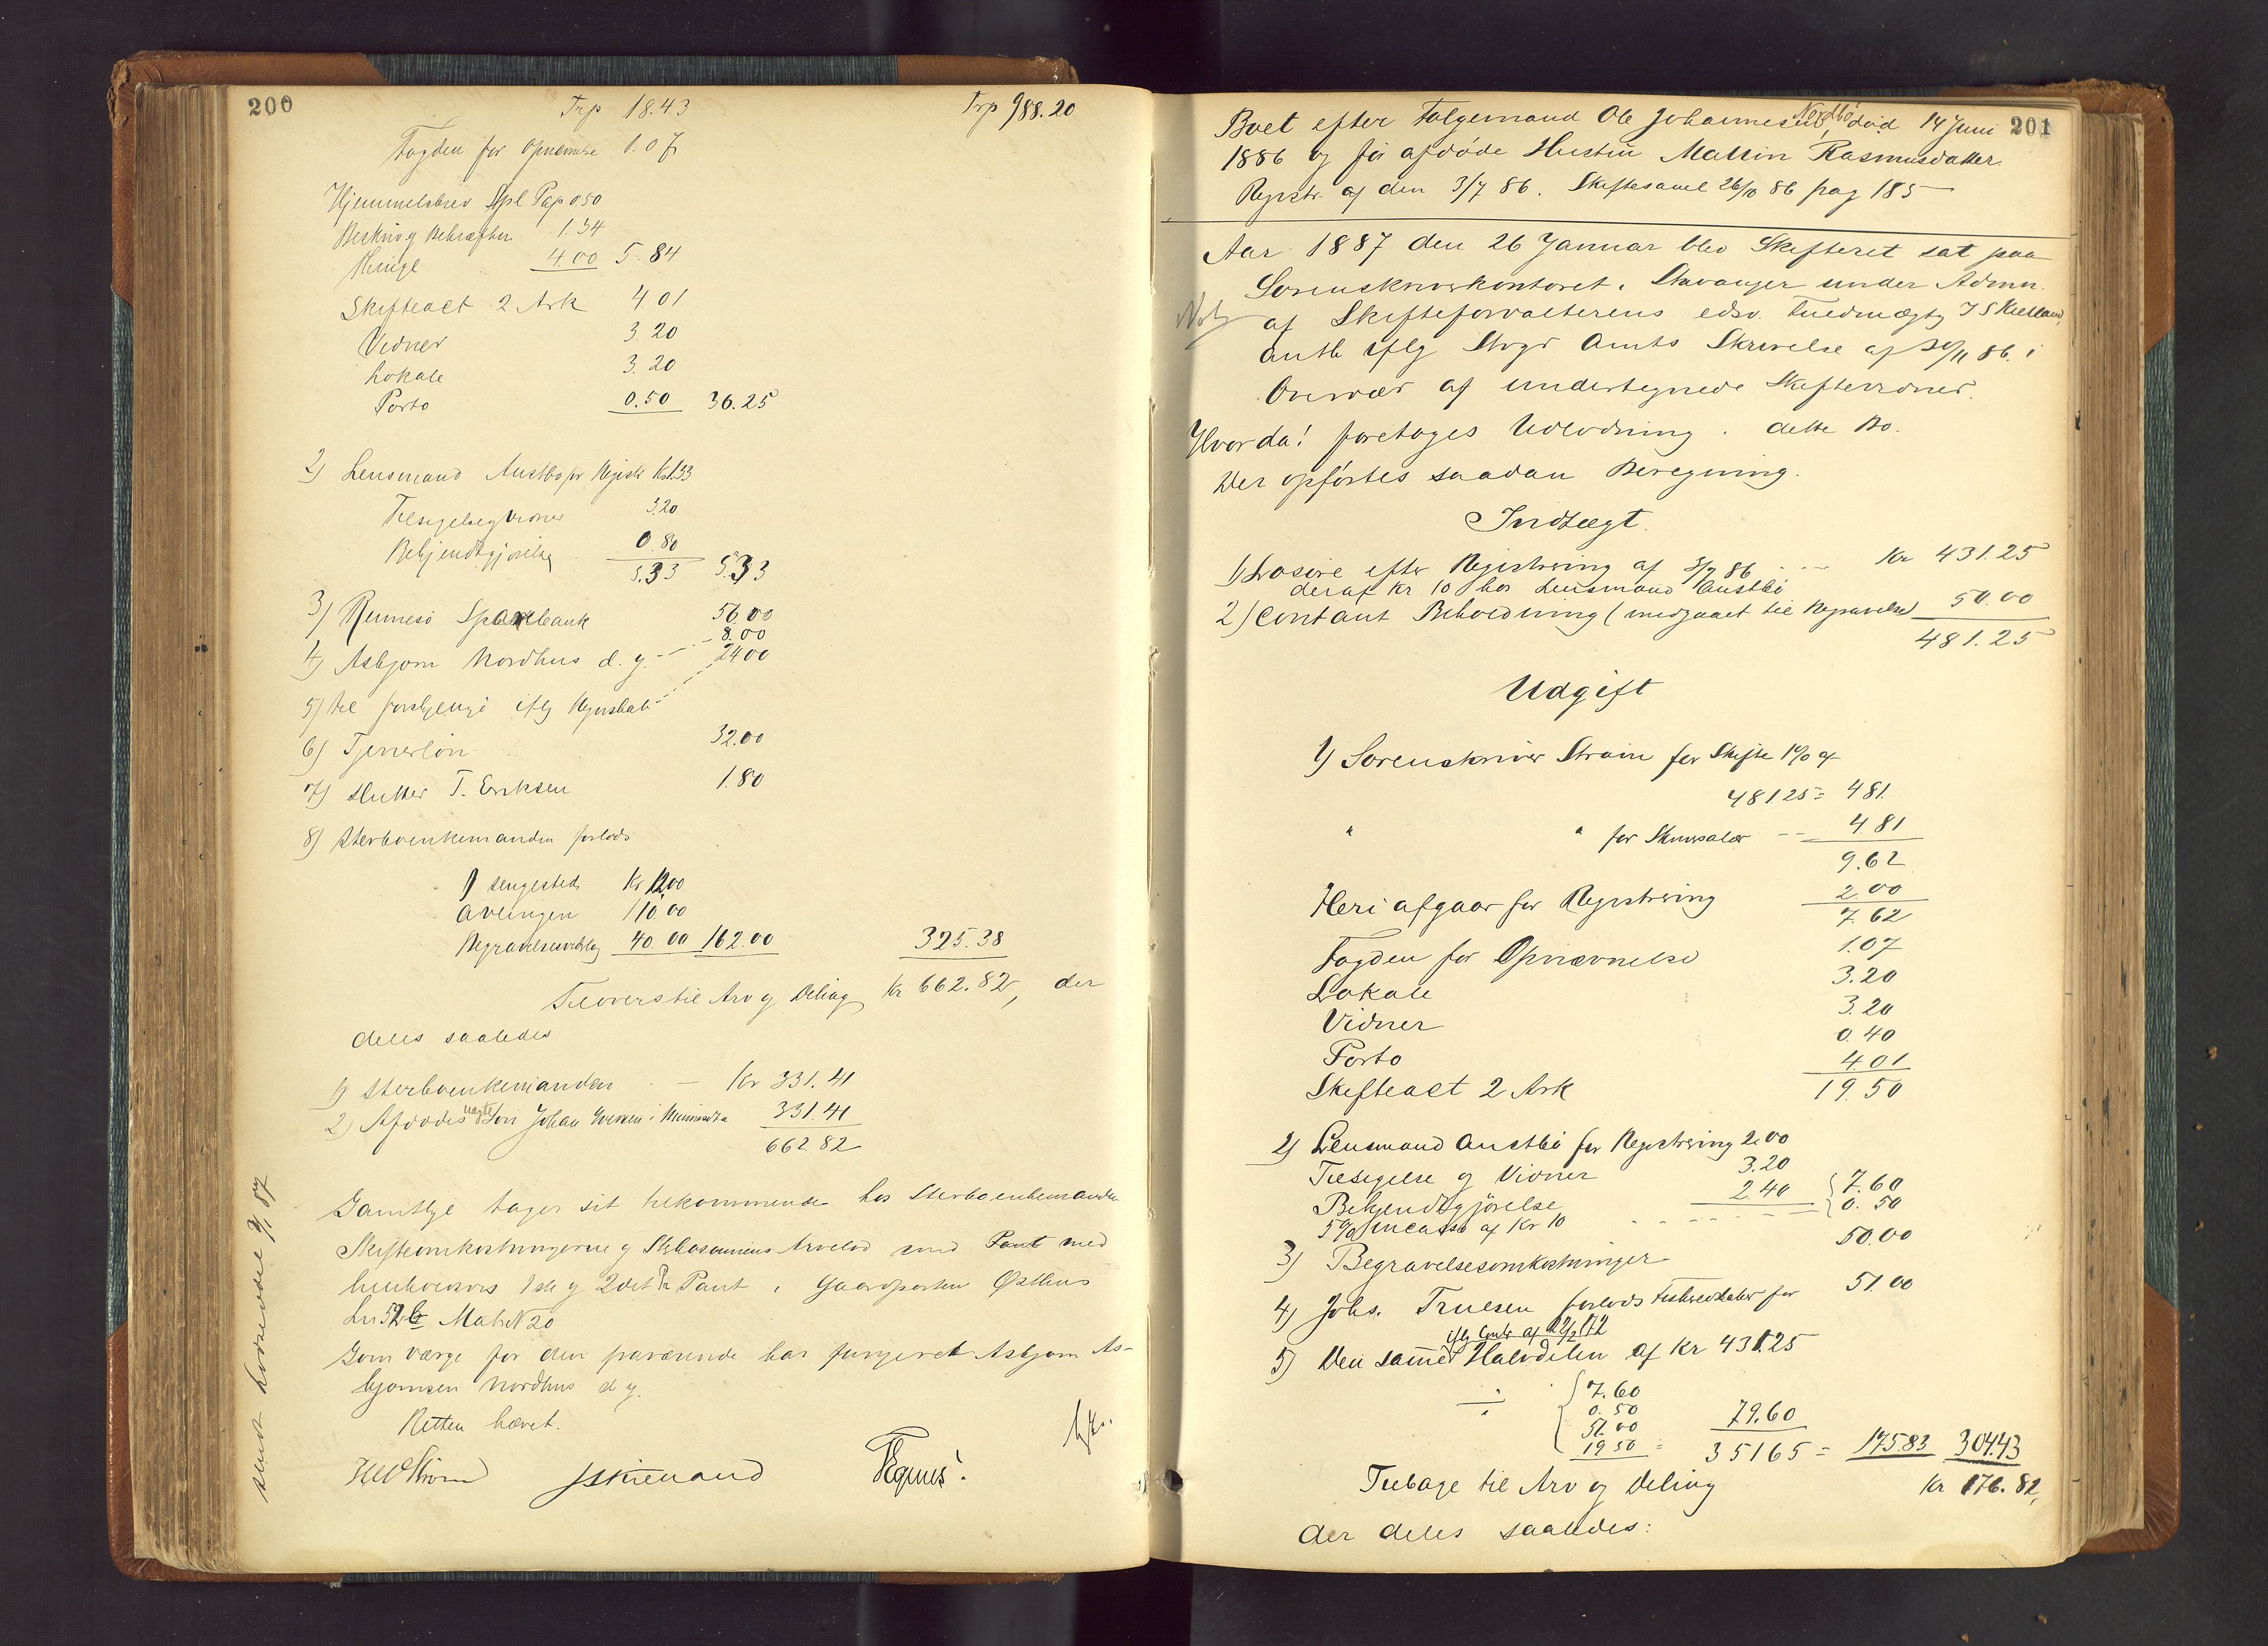 200
Trp 18.43 Trp 988.20
Fogden for Opnævnelse 1.07
Hjemmelsbrev Spl Pap 0.50
Beskriv og Bekræftn 1.34
Thingl 4.00 5.84
Skifteact 2 Ark 4 01
Vidner 3.20
Lokale 3.20
Porto 0.50 36.25
2) Lensmand Austbø for Registr Kr 1.33
Tilsigelse og Vidner 3.20
Bekjendtgjörelse 0.80
5.33 5.33
3) Rennesö Sparebank 56.00
8.00
4) Asbjörn Nordhus d. y. 24.00
5) til forskjellige iflg Regnskab
6) Tjenerlön 32.00
7) Hutter T. Eriksen 1.80
8) Sterboenkemanden forlods
1 sengested Kr 12.00
Avlingen 110.00
Begravelsesudlæg 40.00 162.00 325.38
Tilovers til Arv og Deling Kr 662.82, der
deles saaledes
1) Sterboenkemanden - Kr 331.41
2) Afdödes ægte Sön Johan Iversen i Minnesota 331.41
662 82
Samtlige tager sit tilkommende hos Sterboenkemanden
Skifteomkostningerne og Arvelod med Pant med
1ste og 2det Pr Pant i Gaardparten Østhus
Ln 52 b Mat N 20
Som værge for den fraværende har fungeret Asbjørn As-
bjørnsen Nordhus d y.
Retten hævet.
HW Strøm JSKielland
201
Boet efter Folgemand Ole Johannesen Nordbö, död 14 Juni
1886 og för afdöde Hustru Mallin Rasmusdatter
Registr. af den 3/7 86. Skiftesaml 26/10 86 pag 185
Aar 1887 den 26 Januar blev Skifteret sat paa
Sorenskriverkontoret i Stavanger under Admn.
Not af Skifteforvalterens edsv. Fuldmægtig J S Kielland,
auth iflg Stvgr Amts Skrivelse af 20/11 86. i
Overvær af undertegnede Skiftevidner.
Hvorda! foretages Udlodning i dette Bo.
Der opförtes saadan Beregning.
Indtægt.
1) Lösöre efter Registrering af 3/7 86 - - - Kr 431.25
deraf Kr 10 hos Lensmand Austbö
2) Contant Beholdning (medgaaet til Begravelse) 50.00
481.25
Udgift
1) Sorenskriver Strøm for Skifte 1% af
481.25 = 4 81.
" " for Skriversalær - - 4.81
9.62
Heri afgaar for Registrering 2.00
7.62
Fogden for Opnævnelse 1.07
Lokale 3.20
Vidner 3.20
Porto 0.40
Skifteact 2 Ark 4.01
19.50
2) Lensmand Austbö for Registrering 2.00
Tilsigelse og Vidner 3.20
Bekjendtgjörelse 2.40 7.60
5% incasso af Kr 10 - - - - 0.50
3) Begravelsesomkostninger 50.00
4) Johs. Truesen forlods Fiskeredskaber for 51.00
iflg Contr af 22/2 172
5) Den samme Halvdelen af Kr 431.25
÷ 7.60
0.50
51.00 79.60
19.50 = 351 65 = 175.83 304.43
Tilbage til Arv og Deling Kr 176.82,
der deles saaledes: